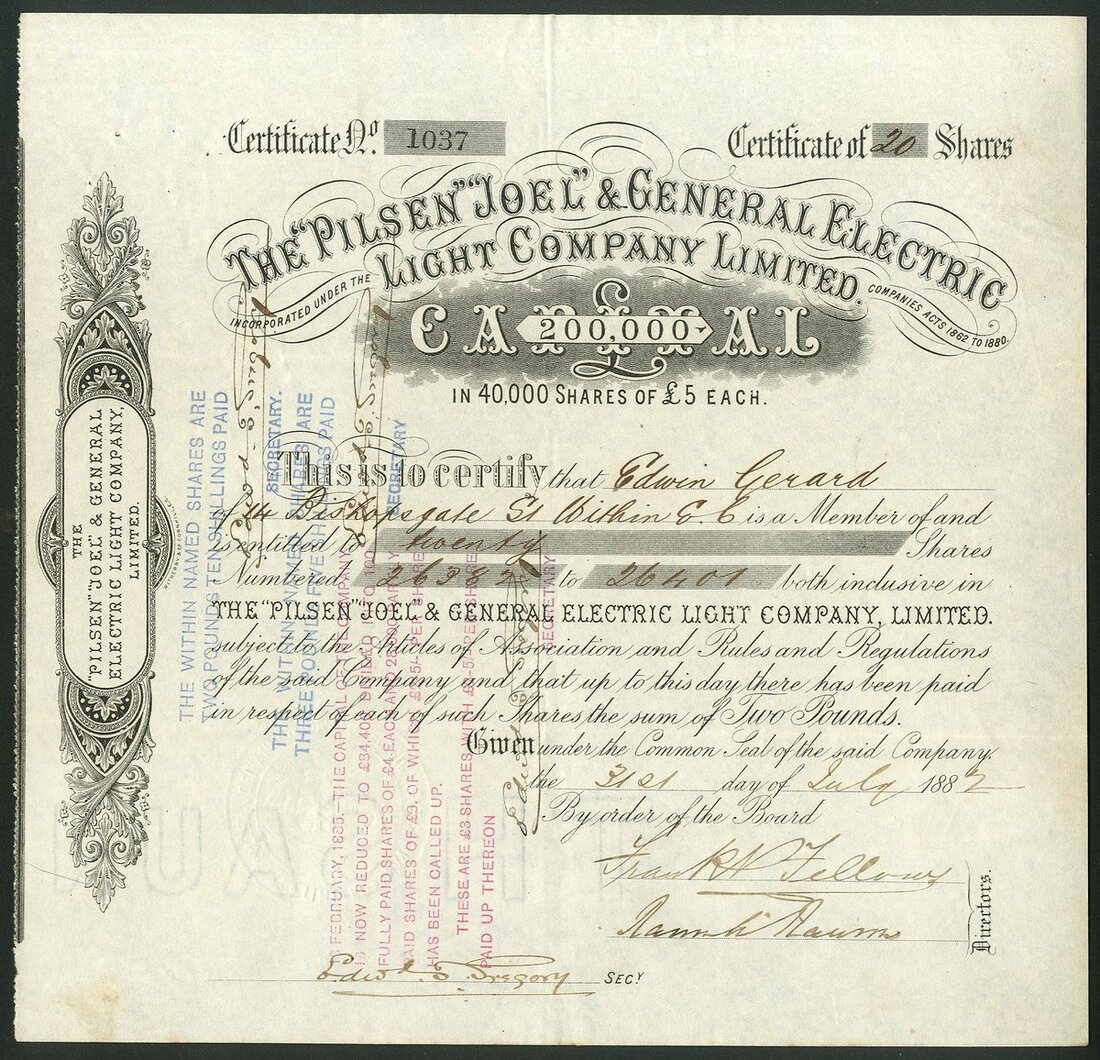 Certificate No. 1037
Certificate of 20 Shares
THE "PILSEN" "JOEL" & GENERAL ELECTRIC
LIGHT COMPANY LIMITED.
INCORPORATED UNDER THE COMPANIES ACTS 1862 TO 1880.
CAPITAL
£200,000
IN 40,000 SHARES OF £5 EACH.
This is to certify that Edwin Gerard
of 14 Bishopsgate St Within E.C is a Member of and
is entitled to twenty Shares
Numbered 26382 to 26401 both inclusive in
THE "PILSEN" "JOEL" & GENERAL ELECTRIC LIGHT COMPANY, LIMITED.
subject to the Articles of Association and Rules and Regulations
of the said Company and that up to this day there has been paid
in respect of each of such Shares the sum of Two Pounds.
Given under the Common Seal of the said Company.
the 31st day of July 1882
By order of the Board
Frank W Fellows
Directors.
Edwd. S. Gregory SECY.
THE
"PILSEN" "JOEL" & GENERAL
ELECTRIC LIGHT COMPANY,
LIMITED.
THE WITHIN NAMED SHARES ARE
TWO POUNDS TEN SHILLINGS PAID
SECRETARY.
THE WITHIN NAMED SHARES ARE
THREE POUNDS FIVE SHILLINGS PAID
SECRETARY
FEBRUARY, 1885.—THE CAPITAL OF THE COMPANY
IS NOW REDUCED TO £84,400 DIVIDED INTO 100
FULLY PAID SHARES OF £4 EACH AND 28000 PARTY
PAID SHARES OF £3, OF WHICH PER SHARE
HAS BEEN CALLED UP.
THESE ARE £3 SHARES WITH PER SHARE
PAID UP THEREON
SECRETARY